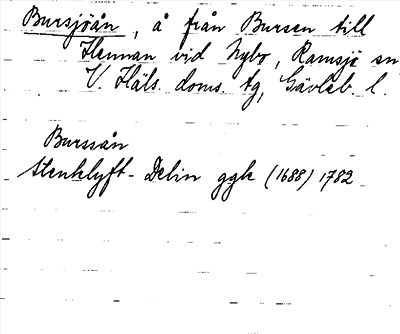 Bursjöån, å från Bursen till
Hennan vid Nybo, Ramsjö sn
V. Häls. doms. tg, Gävleb. l.
Burssån
Stenklyft - Delin ggk (1688) 1782